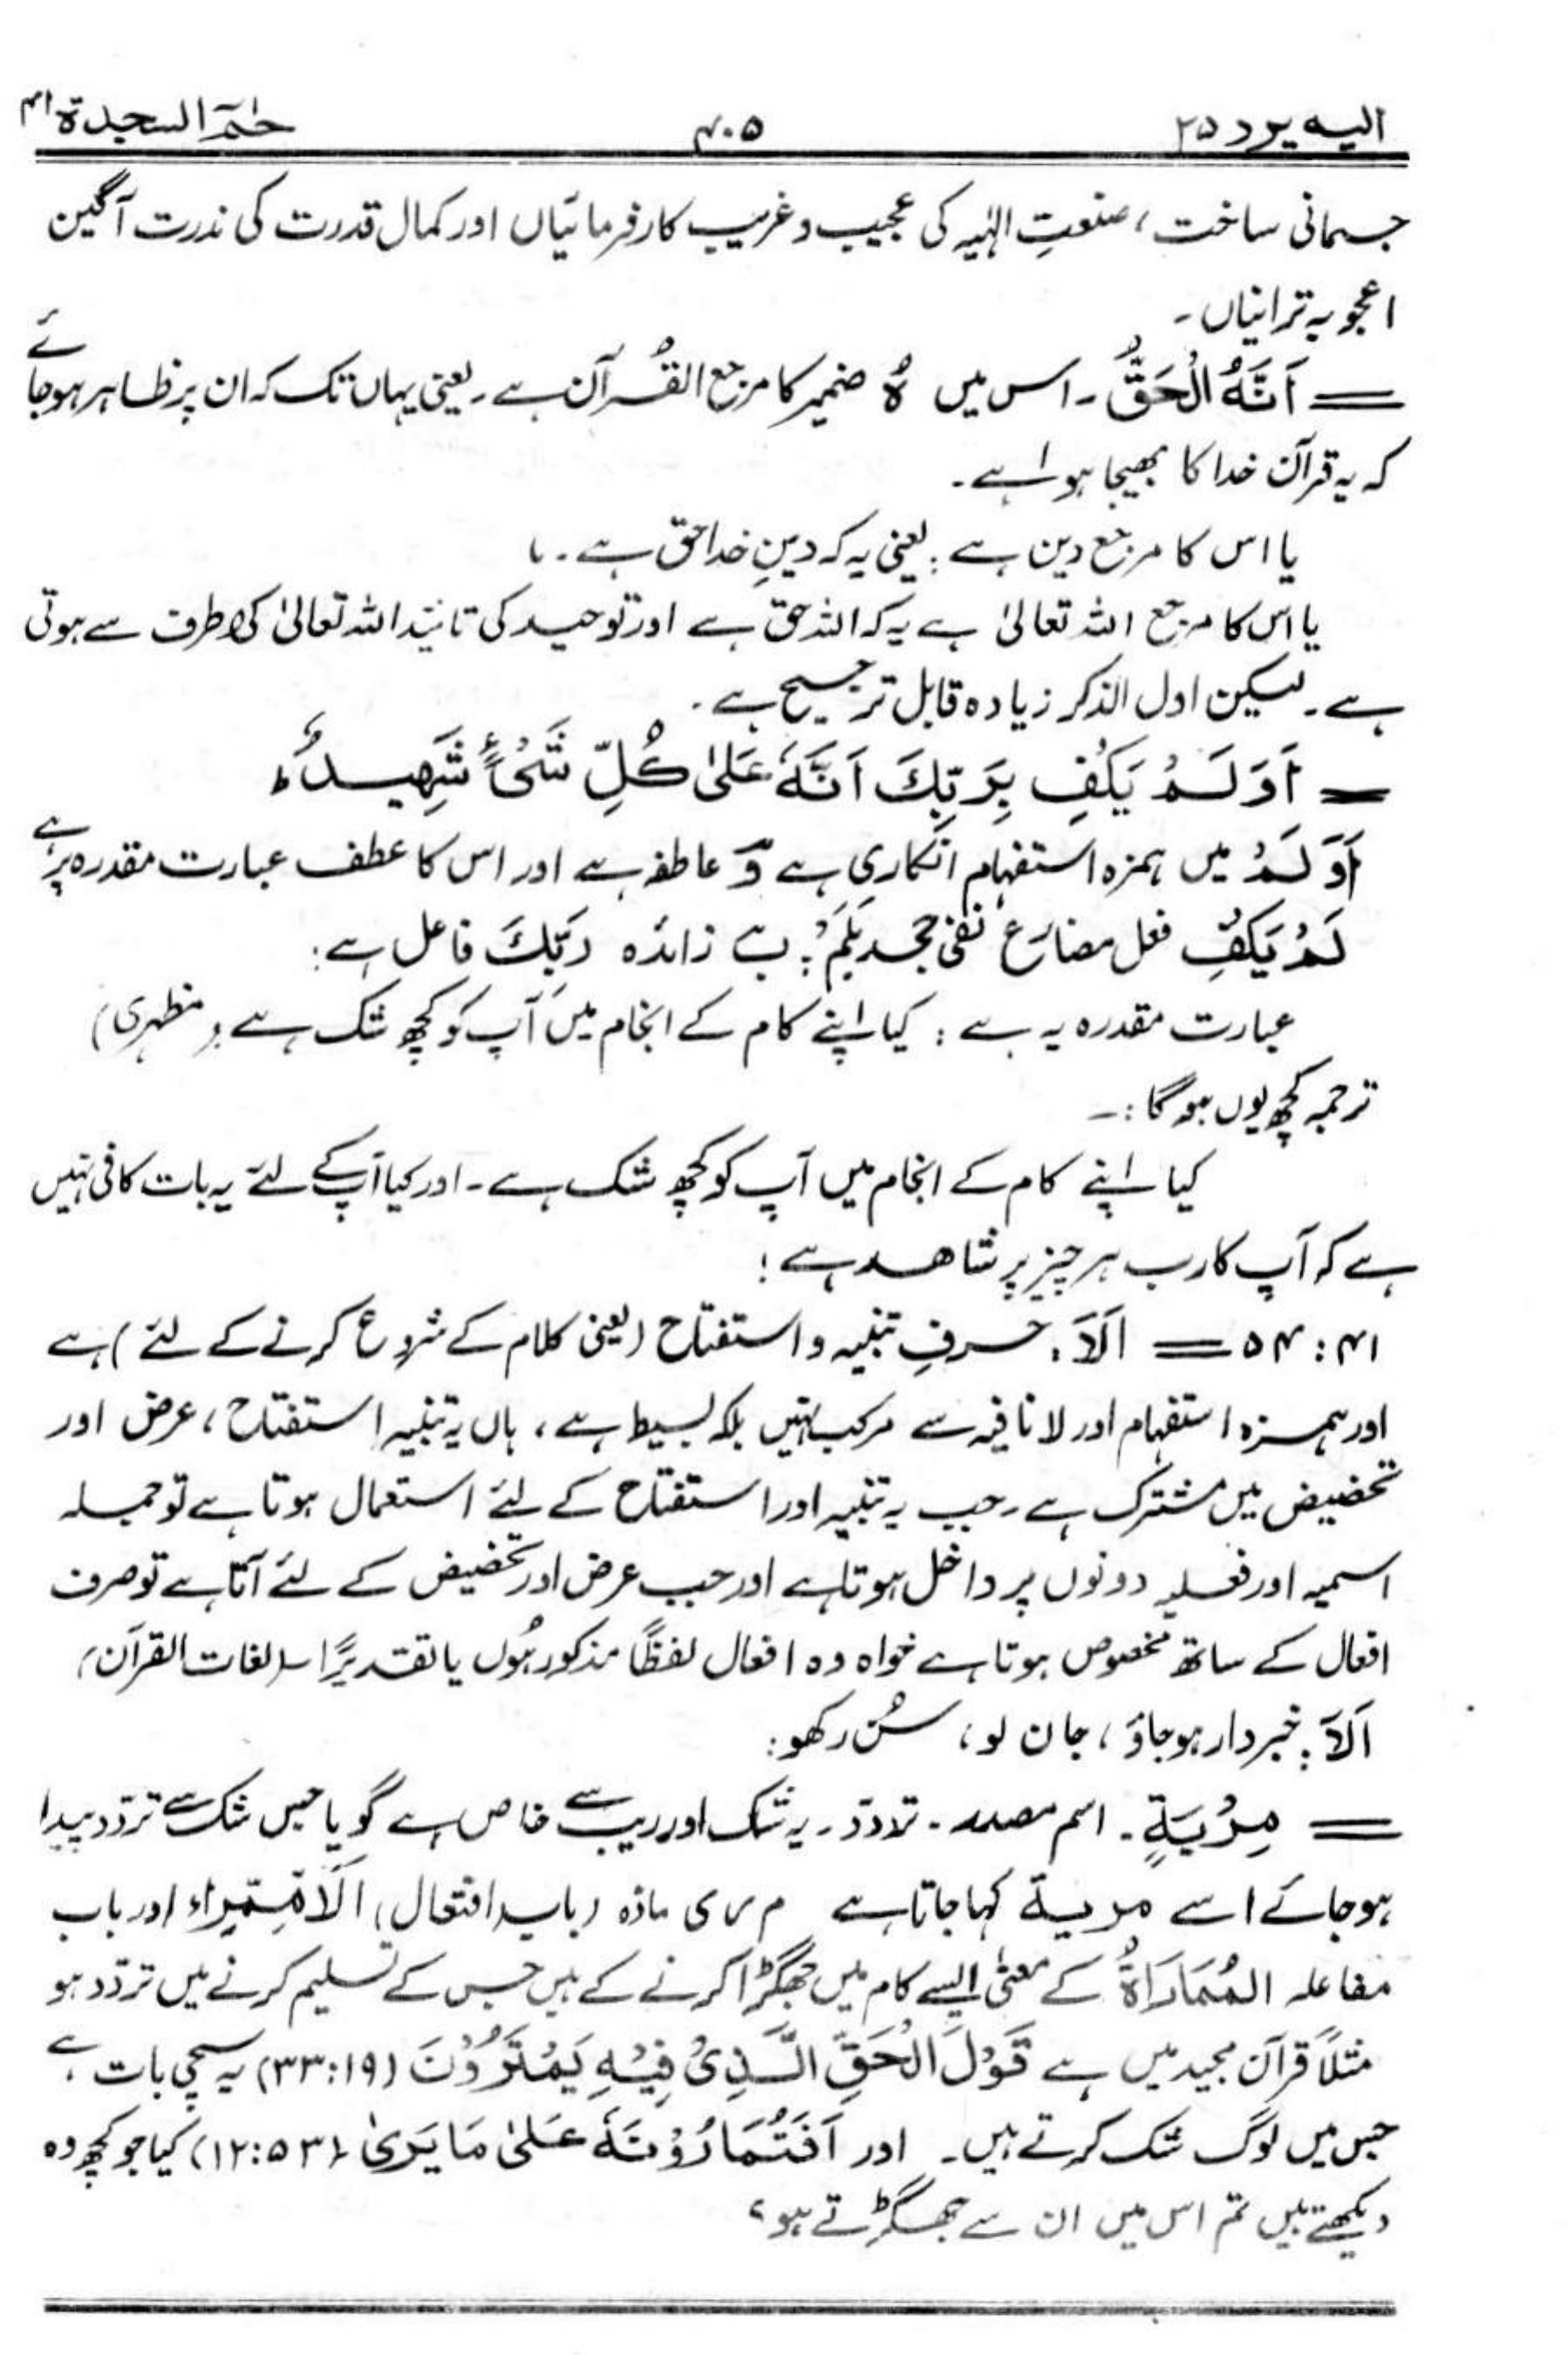 الیہ یرد ۲۵ ۴۰۵ حٰمٓ السجدۃ ۴۱
جسمانی ساخت، صنعتِ الہٰیہ کی عجیب و غریب کارفرمائیاں اور کمال قدرت کی ندرت آگین
اعجوبہ ترانیاں۔
= اَنَّہُ الْحَقُّ۔ اس میں ہٗ ضمیر کا مرجع القُرآن ہے۔ یعنی یہاں تک کہ ان پر ظاہر ہو جائے
کہ یہ قرآن خدا کا بھیجا ہوا ہے۔
یا اس کا مرجع دین ہے: یعنی یہ کہ دینِ خدا حق ہے۔ یا
یا اس کا مرجع اللہ تعالیٰ ہے یہ کہ اللہ حق ہے اور توحید کی تائید اللہ تعالیٰ کی طرف سے ہوتی
ہے۔ لیکن اول الذکر زیادہ قابل ترجیح ہے۔
= اَوَ لَمْ یَکْفِ بِرَبِّکَ اَنَّہٗ عَلیٰ کُلِّ شَیْءٍ شَہِیْدٌ ؕ
اَوَ لَمْ میں ہمزہ استفہام انکاری ہے وَ عاطفہ ہے اور اس کا عطف عبارت مقدرہ پر ہے
لَمْ یَکْفِ فعل مضارع نفی جحد بلَمْ: بِ زائدہ رَبِّکَ فاعل ہے:
عبارت مقدرہ یہ ہے: کیا اپنے کام کے انجام میں آپ کو کچھ شک ہے؛ (مظہری)
ترجمہ کچھ یوں ہوگا:۔
کیا اپنے کام کے انجام میں آپ کو کچھ شک ہے۔ اور کیا آپ کے لئے یہ بات کافی نہیں
ہے کہ آپ کا رب ہر چیز پر شاھد ہے؛
۴۱: ۵۴ = اَلَاۤ: حرفِ تنبیہ و استفتاح (یعنی کلام کے شروع کرنے کے لئے) ہے
اور ہمزہ استفہام اور لا نافیہ سے مرکب نہیں بلکہ بسیط ہے، ہاں یہ تنبیہ استفتاح، عرض اور
تحضیض میں مشترک ہے۔ جب یہ تنبیہ اور استفتاح کے لئے استعمال ہوتا ہے تو جملہ
اسمیہ اور فعلیہ دونوں پر داخل ہوتا ہے اور جب عرض اور تحضیض کے لئے آتا ہے تو صرف
افعال کے ساتھ مخصوص ہوتا ہے خواہ وہ افعال لفظًا مذکور ہُوں یا تقدیرًا۔ (لغات القرآن)
اَلَاۤ: خبردار ہو جاؤ، جان لو، سُن رکھو:
= مِرْیَۃٍ۔ اسم مصدر۔ تردّد۔ یہ شک اور ریب سے خاص ہے گویا جس شک سے تردّد پیدا
ہو جائے اسے مریۃ کہا جاتا ہے م ر ی مادّہ (باب افتعال) اَلْاِمْتِرَاء اور باب
مفاعلہ المُمَارَاۃُ کے معنیٰ ایسے کام میں جھگڑا کرنے کے ہیں جس کے تسلیم کرنے میں تردّد ہو
مثلاً قرآن مجید میں ہے قَوْلَ الْحَقِّ الَّذِیْ فِیْہِ یَمْتَرُوْنَ (۱۹: ۳۳) یہ سچی بات ہے
جس میں لوگ شک کرتے ہیں۔ اور اَفَتُمَارُوْنَہٗ عَلیٰ مَا یَرٰی (۵۳: ۱۲) کیا جو کچھ وہ
دیکھتے ہیں تم اس میں ان سے جھگڑتے ہو؟